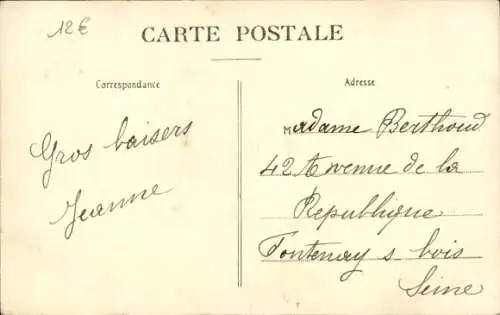 12€
CARTE POSTALE
Correspondance
Adresse
Gros baisers
Jeanne
Madame Berthoud
42 Avenue de la
Republique
Fontenay s bois
Seine